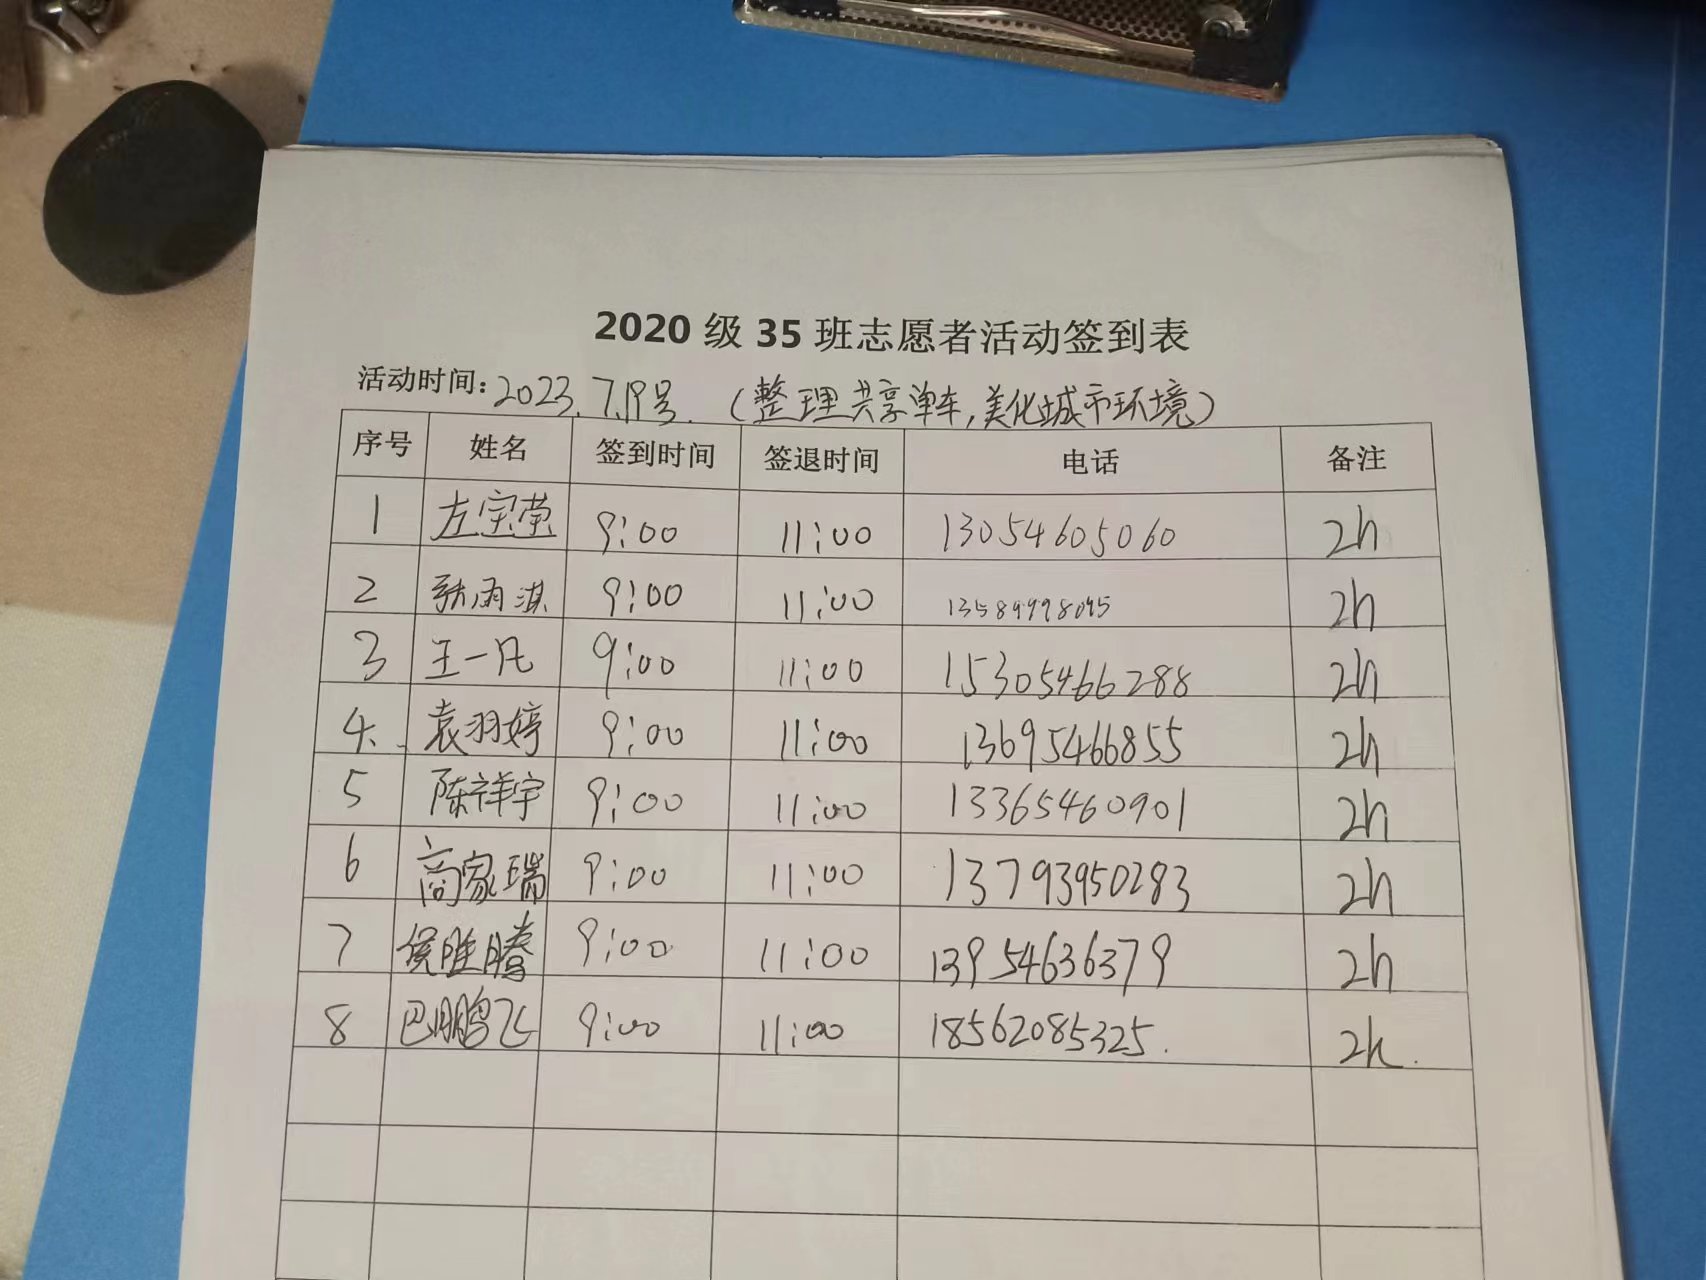 2020 级 35 班志愿者活动签到表
活动时间: 2023.7.19号. (整理共享单车,美化城市环境)
序号 姓名 签到时间 签退时间 电话 备注
1 左宝莹 9:00 11:00 13054605060 2h
2 张雨淇 9:00 11:00 13589998095 2h
3 王一凡 9:00 11:00 15305466288 2h
4. 袁羽婷 9:00 11:00 13695466855 2h
5 陈祥宇 9:00 11:00 13365460901 2h
6 商家瑞 9:00 11:00 13793950283 2h
7 侯胜腾 9:00 11:00 13954636379 2h
8 巴鹏飞 9:00 11:00 18562085325. 2h.